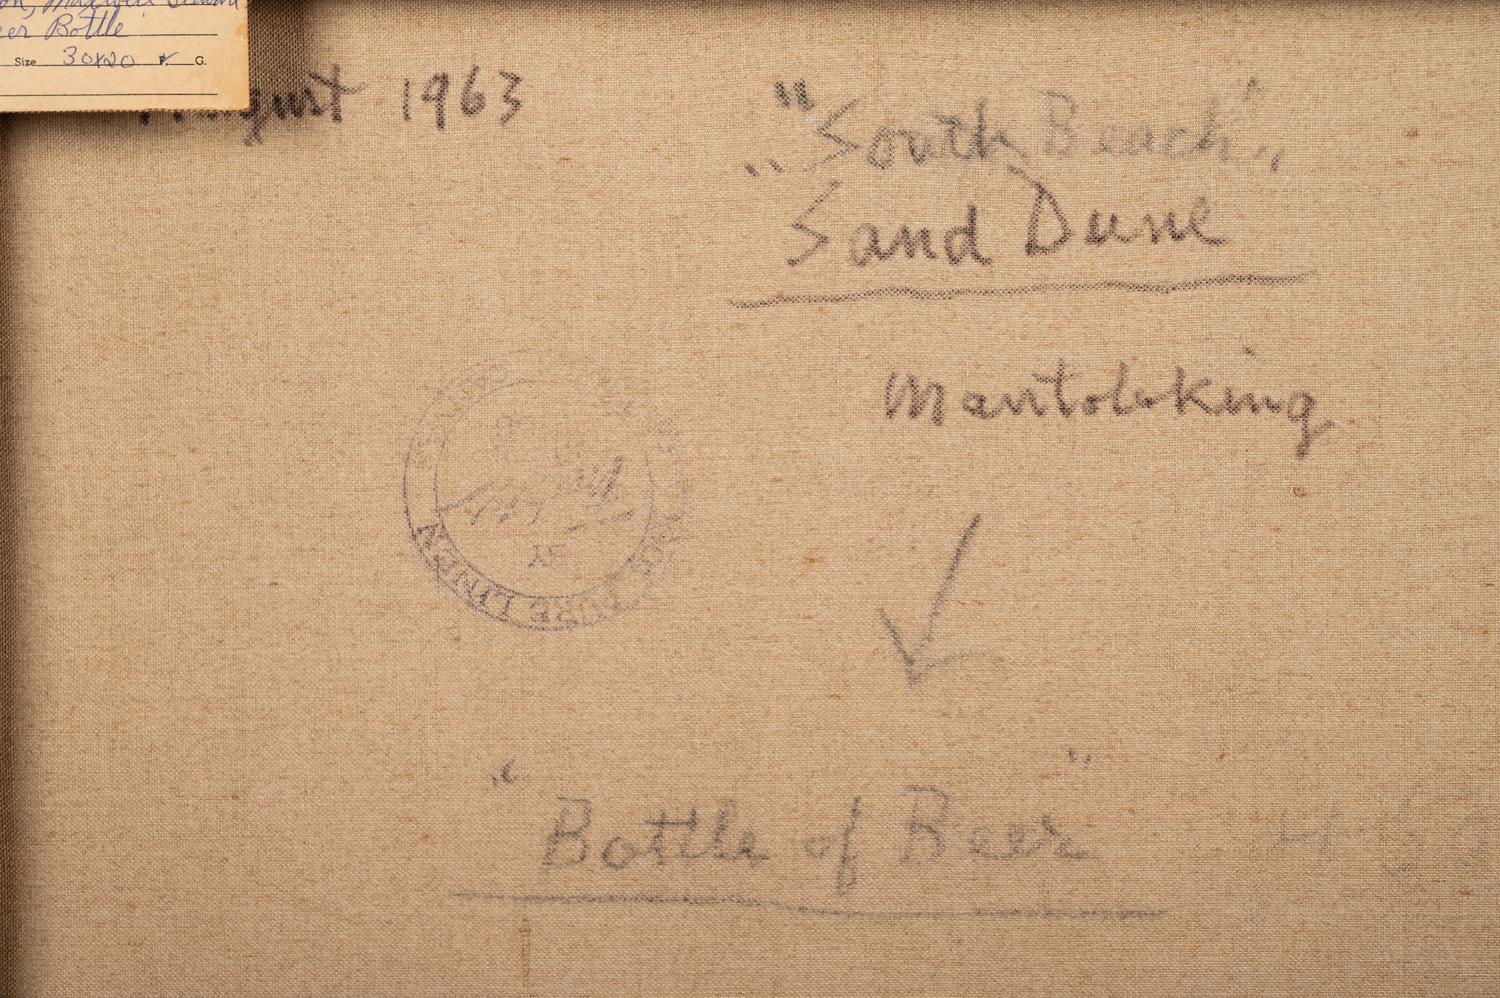 Beer Bottle
Size 30x20 F. G.
August 1963
"South Beach"
"Sand Dune"
Mantoloking
PURE LINEN
BY
"Bottle of Beer"